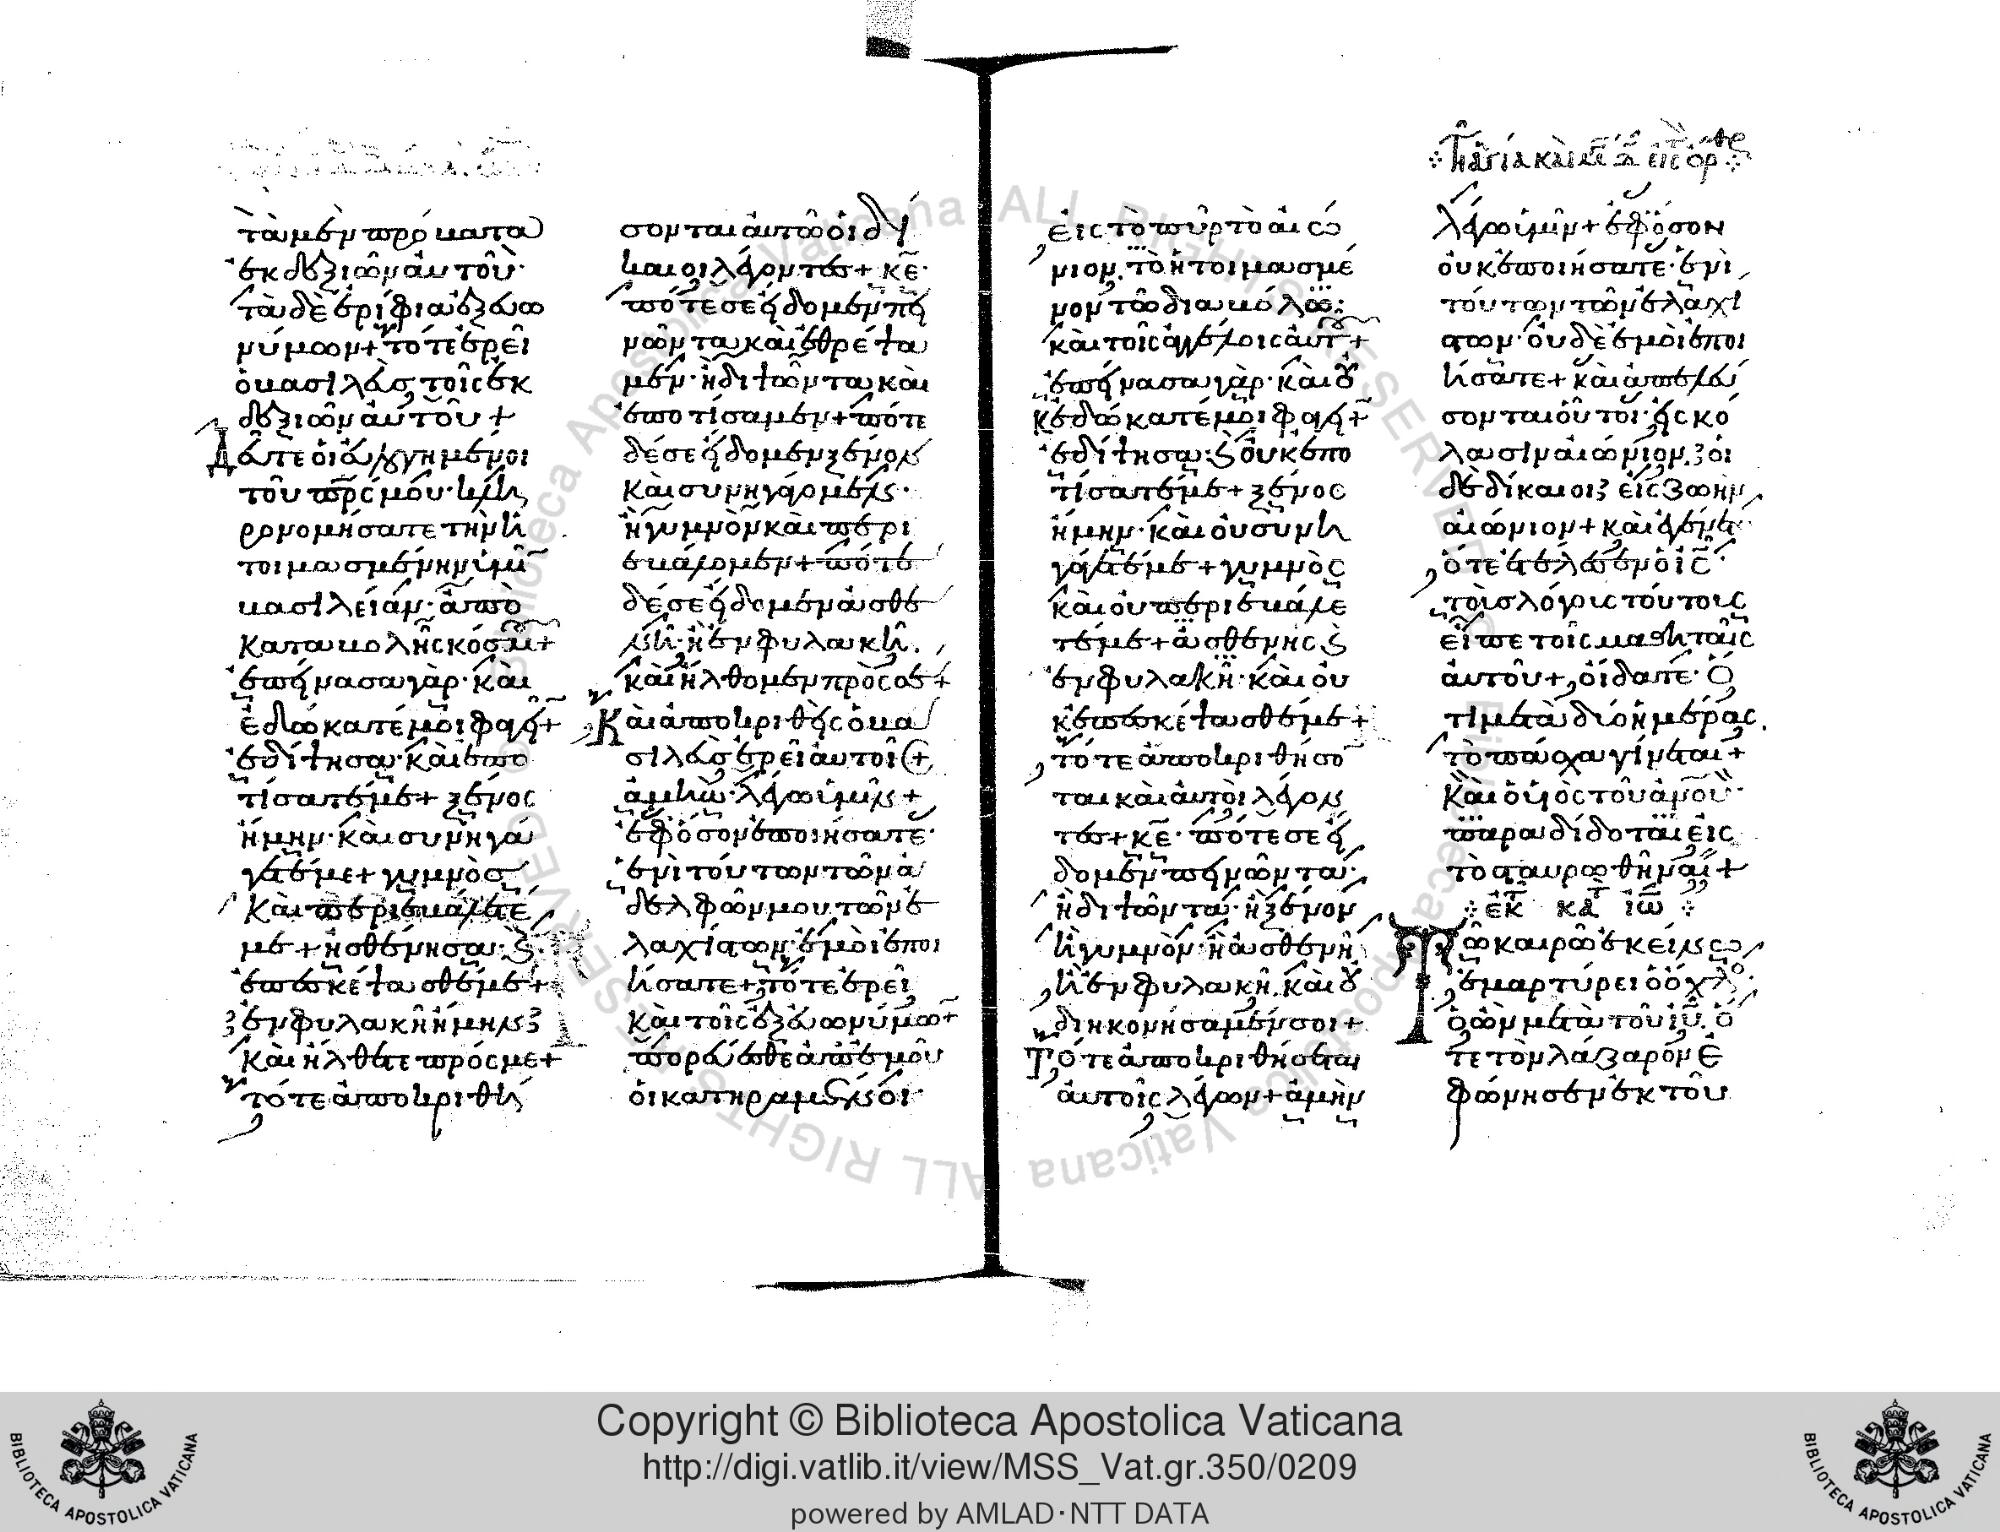 τὰ μὲν πρόβατα
ἐκ δεξιῶν αὐτοῦ·
τὰ δὲ ἐρίφια ἐξ εὐω
νύμων + τότε ἐρεῖ
ὁ βασιλεὺς τοῖς ἐκ
δεξιῶν αὐτοῦ +
Δεῦτε οἱ εὐλογημένοι
τοῦ πρς μου· κλη
ρονομήσατε τὴν ἡ
τοιμασμένην ὑμῖ
βασιλείαν· ἀπὸ
καταβολῆς κόσμ +
ἐπείνασα γὰρ· καὶ
ἐδώκατέ μοι φαγεῖ +
ἐδίψησα· καὶ ἐπο
τίσατέ με + ξένος
ἤμην· καὶ συνηγά
γετέ με + γυμνὸς
καὶ περιεβάλετέ
με + ἠσθένησα· ϗ
ἐπεσκέψασθέ με +
ἐν φυλακῇ ἤμην
καὶ ἤλθετε πρός με +
τότε ἀποκριθή
σονται αὐτῷ οἱ δί
καιοι λέγοντες + κε·
πότε σὲ εἴδομεν πει
νῶντα καὶ ἐθρέψα
μεν· ἢ διψῶντα καὶ
ἐποτίσαμεν + πότε
δέ σε εἴδομεν ξένον
καὶ συνηγάγομεν·
ἢ γυμνὸν καὶ περι
εβάλομεν + πότε
δέ σε εἴδομεν ἀσθε
νῆ· ἢ ἐν φυλακῆ.
καὶ ἤλθομεν πρὸς σε +
Καὶ ἀποκριθεὶς ὁ βα
σιλεὺς ἐρεῖ αὐτοῖς +
ἀμὴν· λέγω ὑμῖν +
ἐφ' ὅσον ἐποιήσατε·
ἑνὶ τούτων τῶν ἀ
δελφῶν μου τῶν ἐ
λαχίστων· ἐμοὶ ἐποι
ήσατε + τότε ἐρεῖ
καὶ τοῖς ἐξ εὐωνύμω +
πορεύεσθε ἀπ' ἐμοῦ
οἱ κατηραμένοι·
εἰς τὸ πῦρ τὸ αἰώ
νιον. τὸ ἡτοιμασμέ
νον τῷ διαβόλω·
καὶ τοῖς ἀγγέλοις αὐτ +
ἐπείνασα γὰρ· καὶ οὐ
κ ἐδώκατέ μοι φαγεῖ +
ἐδίψησα· ϗ οὐκ ἐπο
τίσατέ με + ξένος
ἤμην· καὶ οὐ συνη
γάγετέ με + γυμνὸς
καὶ οὐ περιεβάλε
τέ με + ἀσθενὴς ϗ
ἐν φυλακῆ· καὶ οὐ
κ ἐπεσκέψασθέ με +
τότε ἀποκριθήσο
ται καὶ αὐτοὶ λέγον
τες + κε· πότε σὲ εἴ
δομεν πεινῶντα·
ἢ διψῶντα· ἢ ξένον
ἢ γυμνὸν· ἢ ἀσθενῆ
ἢ ἐν φυλακῆ. καὶ οὐ
διηκονήσαμέν σοι +
Τότε ἀποκριθήσεται
αὐτοῖς λέγων + ἀμὴν
λέγω ὑμῖν + ἐφ' ὅσον
οὐκ ἐποιήσατε· ἑνὶ
τούτων τῶν ἐλαχί
στων· οὐδὲ ἐμοὶ ἐποι
ήσατε + καὶ ἀπελεύ
σονται οὗτοι· εἰς κό
λασιν αἰώνιον. οἱ
δὲ δίκαιοι εἰς ζωὴν
αἰώνιον + καὶ ἐγένετο
ὅτε ἐτέλεσεν ὁ ις
τοὺς λόγους τούτους
εἶπε τοῖς μαθηταῖς
αὐτοῦ +, οἴδατε· ὅ
τι μετὰ δύο ἡμέρας
τὸ πάσχα γίνεται +
Καὶ ὁ υἱὸς τοῦ ἀνοῦ·
παραδίδοται εἰς
τὸ σταυρωθῆναι +
ἐκ κατ ιω
Τῶ καιρῶ ἐκείνω
ἐμαρτύρει ὁ ὄχλο
ὁ ὢν μετὰ τοῦ ιυ. ὅ
τε τὸν λάζαρον ἐ
φώνησεν ἐκ τοῦ
Copyright © Biblioteca Apostolica Vaticana
http://digi.vatlib.it/view/MSS_Vat.gr.350/0209
powered by AMLAD·NTT DATA
BIBLIOTECA APOSTOLICA VATICANA
BIBLIOTECA APOSTOLICA VATICANA